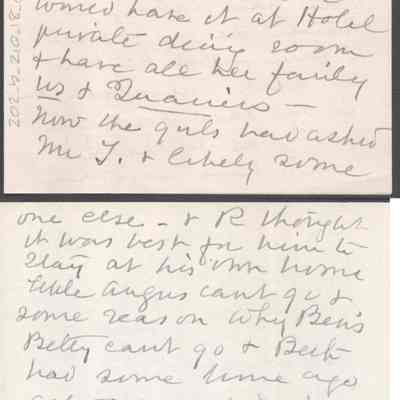 would have it at Hotel
private dining room
& have all her family
us &
Now the girls had asked
Mr T. & likely some
one else - & R thought
it was best for him to
stay at his own home
Angus cant go &
some reason why Ben's
Betty cant go &
had some time ago